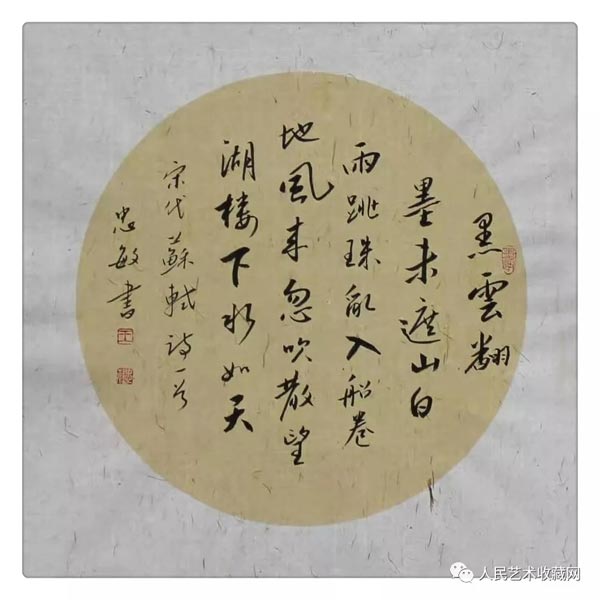 黑雲翻
墨未遮山白
雨跳珠亂入船卷
地風来忽吹散望
湖楼下水如天
宋代蘇軾詩一首
忠敏書
人民艺术收藏网